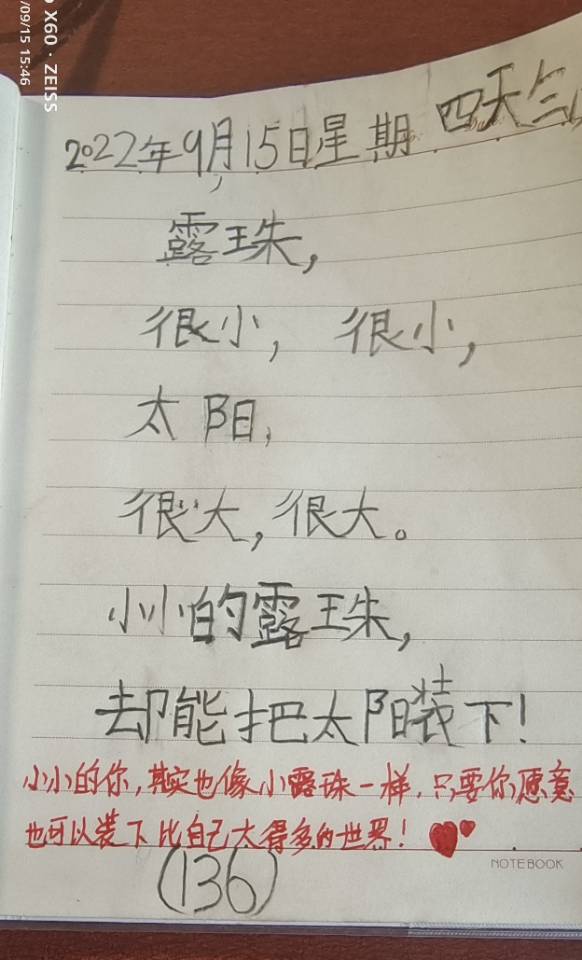 X60 · ZEISS
/09/15 15:46
2022年9月15日星期四天气
露珠，
很小，很小，
太阳，
很大，很大。
小小的露珠，
却能把太阳装下！
小小的你，其实也像小露珠一样，只要你愿意
也可以装下比自己大得多的世界！
NOTEBOOK
(136)